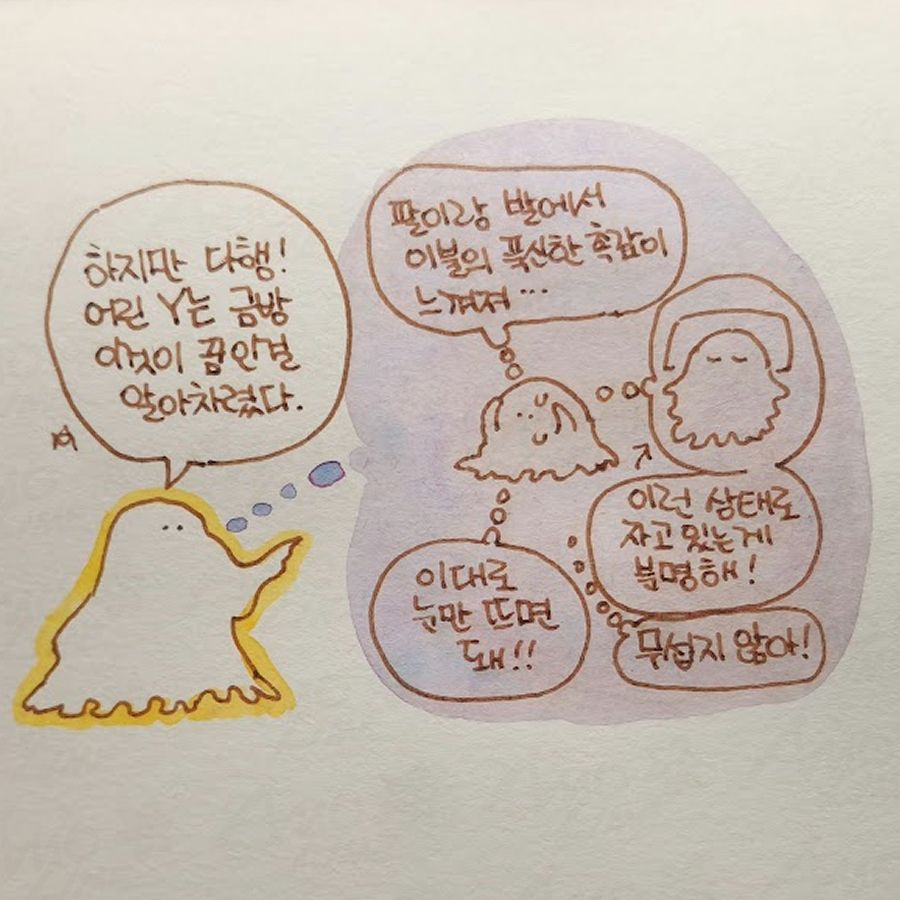 하지만 다행!
어린 Y는 금방
이것이 꿈인걸
알아차렸다.
팔이랑 발에서
이불의 푹신한 촉감이
느껴져...
이런 상태로
자고 있는게
분명해!
이대로
눈만 뜨면
돼!!
무섭지 않아!